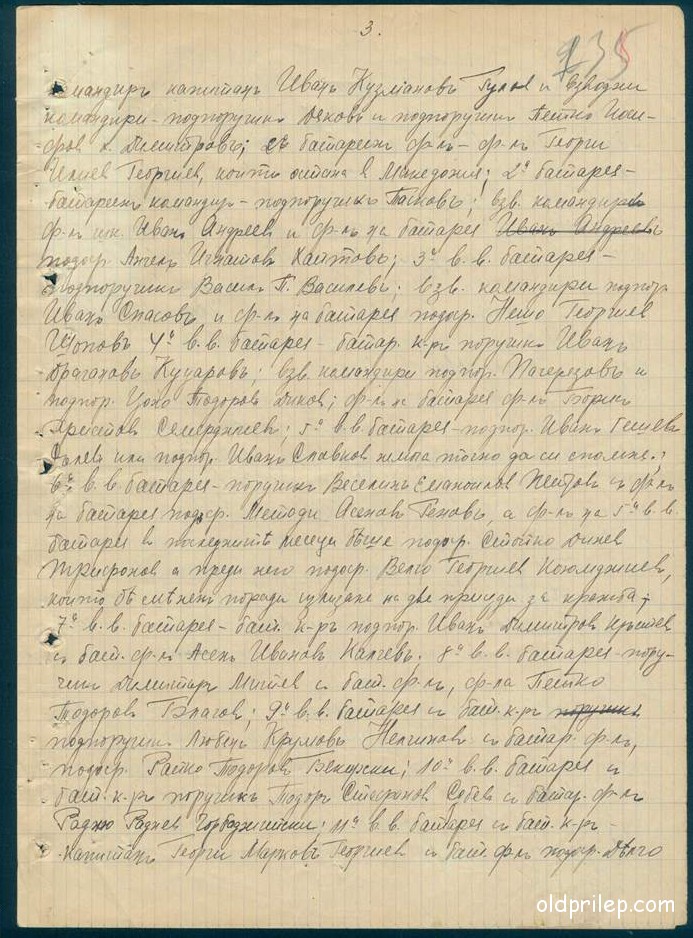 3.
735
командиръ капитанъ Иванъ Кузмановъ и взводни
командири - подпоручикъ Дековъ и подпоручикъ Пешко
Димитровъ; батареенъ ф-лъ - ф-лъ Георги
Илиев Георгиев, който остана в Македония; 2а батарея -
батареенъ командиръ - подпоручикъ Пасковъ; взв. командиръ
ф-лъ Иванъ Андреев и ф-лъ на батарея Иванъ Андреевъ
подоф. Ангелъ Игнатовъ Хаитовъ; 3а в.в. батарея -
подпоручикъ Василъ П. Василевъ; взв. командири подпор.
Иванъ Спасовъ и ф-лъ на батарея подоф. Нешо Георгиев
4а в.в. батарея - батар. к-ръ поручикъ Иванъ
Драгановъ Куцаровъ; взв. командири подпор. и
подпор. Цоно Тодоров Диков; ф-лъ на батарея ф-лъ Борисъ
Христов Семерджиев; 5а в.в. батарея - подпор. Иванъ Гешевъ
или подпор. Иванъ Славков немога точно да си спомня.;
6а в.в. батарея - поручикъ Веселинъ Емануилов Петров и ф-лъ
на батарея подоф. Методи Асенов Геновъ, а ф-лъ на 5а в.в.
батарея в последнитѣ месеци бѣше подоф. Стойко Динев
Трифонов а преди него подоф. Велю Георгиев Коюмджиев,
който бѣ смѣненъ поради излизане на две присъди за кражба;
7а в.в. батарея - бат. к-ръ подпор. Иванъ Димитров Кръстев
и бат. ф-лъ Асенъ Иванов Калчевъ. 8а в.в. батарея - пору-
чикъ Димитъръ Митев и бат. ф-лъ, ф-ла Пешко
Тодоров Благов; 9а в.в. батарея и бат. к-ръ поручикъ
подпоручикъ Любенъ Крумовъ и батар. ф-лъ,
подоф. Райко Тодоров; 10а в.в. батарея и
бат. к-ръ поручикъ Тодоръ Стефанов Събев и батар. ф-лъ
Раджю Раднев; 11а в.в. батарея и бат. к-ръ -
капитанъ Георги Марковъ Георгиев и бат. ф-лъ подоф. Дѣлчо
oldprilep.com